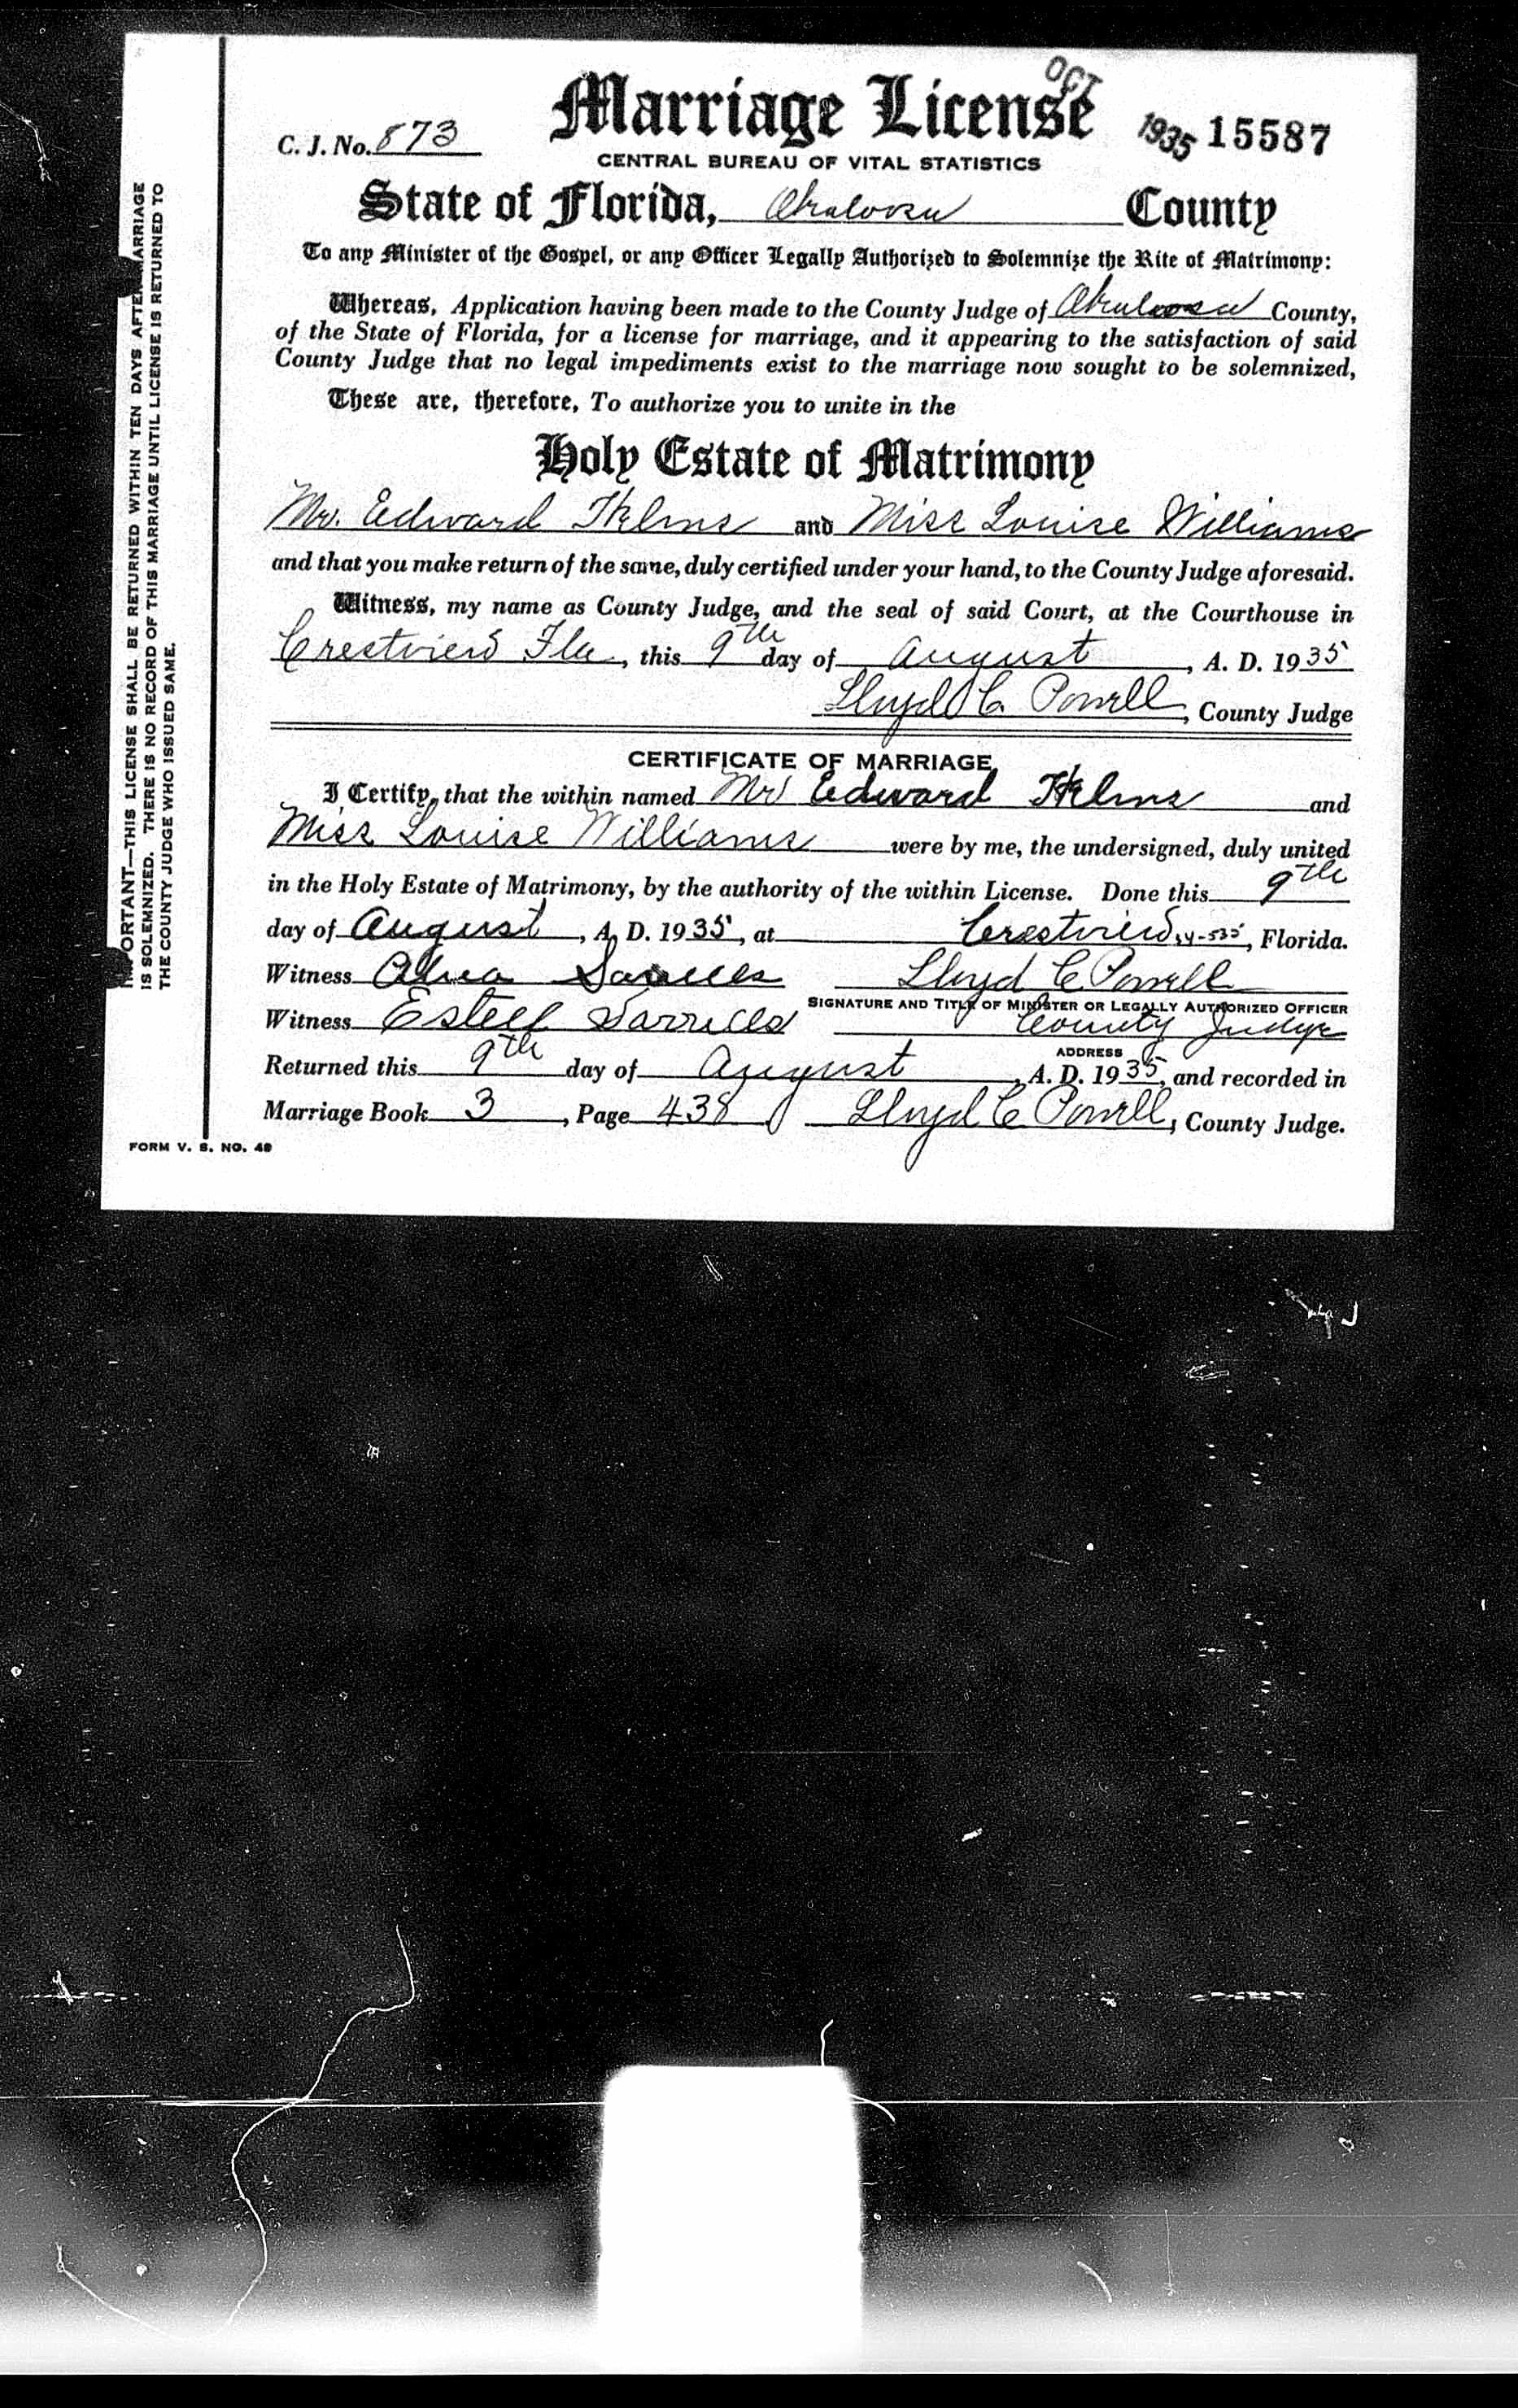 OCT
Marriage License
C. J. No. 873
1935 15587
CENTRAL BUREAU OF VITAL STATISTICS
State of Florida, Okaloosa County
To any Minister of the Gospel, or any Officer Legally Authorized to Solemnize the Rite of Matrimony:
Whereas, Application having been made to the County Judge of Okaloosa County,
of the State of Florida, for a license for marriage, and it appearing to the satisfaction of said
County Judge that no legal impediments exist to the marriage now sought to be solemnized,
These are, therefore, To authorize you to unite in the
Holy Estate of Matrimony
Mr. Edward Helms and Miss Louise Williams
and that you make return of the same, duly certified under your hand, to the County Judge aforesaid.
Witness, my name as County Judge, and the seal of said Court, at the Courthouse in
Crestview Fla, this 9th day of August, A. D. 1935
Lloyd C. Powell, County Judge
CERTIFICATE OF MARRIAGE
I Certify, that the within named Mr Edward Helms and
Miss Louise Williams were by me, the undersigned, duly united
in the Holy Estate of Matrimony, by the authority of the within License. Done this 9th
day of August, A. D. 1935, at Crestview, Florida.
Witness Lloyd C Powell
SIGNATURE AND TITLE OF MINISTER OR LEGALLY AUTHORIZED OFFICER
Witness Estell County Judge
ADDRESS
Returned this 9th day of August, A. D. 1935, and recorded in
Marriage Book 3, Page 438 Lloyd C Powell, County Judge.
FORM V. S. NO. 40
IMPORTANT—THIS LICENSE SHALL BE RETURNED WITHIN TEN DAYS AFTER MARRIAGE
IS SOLEMNIZED. THERE IS NO RECORD OF THIS MARRIAGE UNTIL LICENSE IS RETURNED TO
THE COUNTY JUDGE WHO ISSUED SAME.